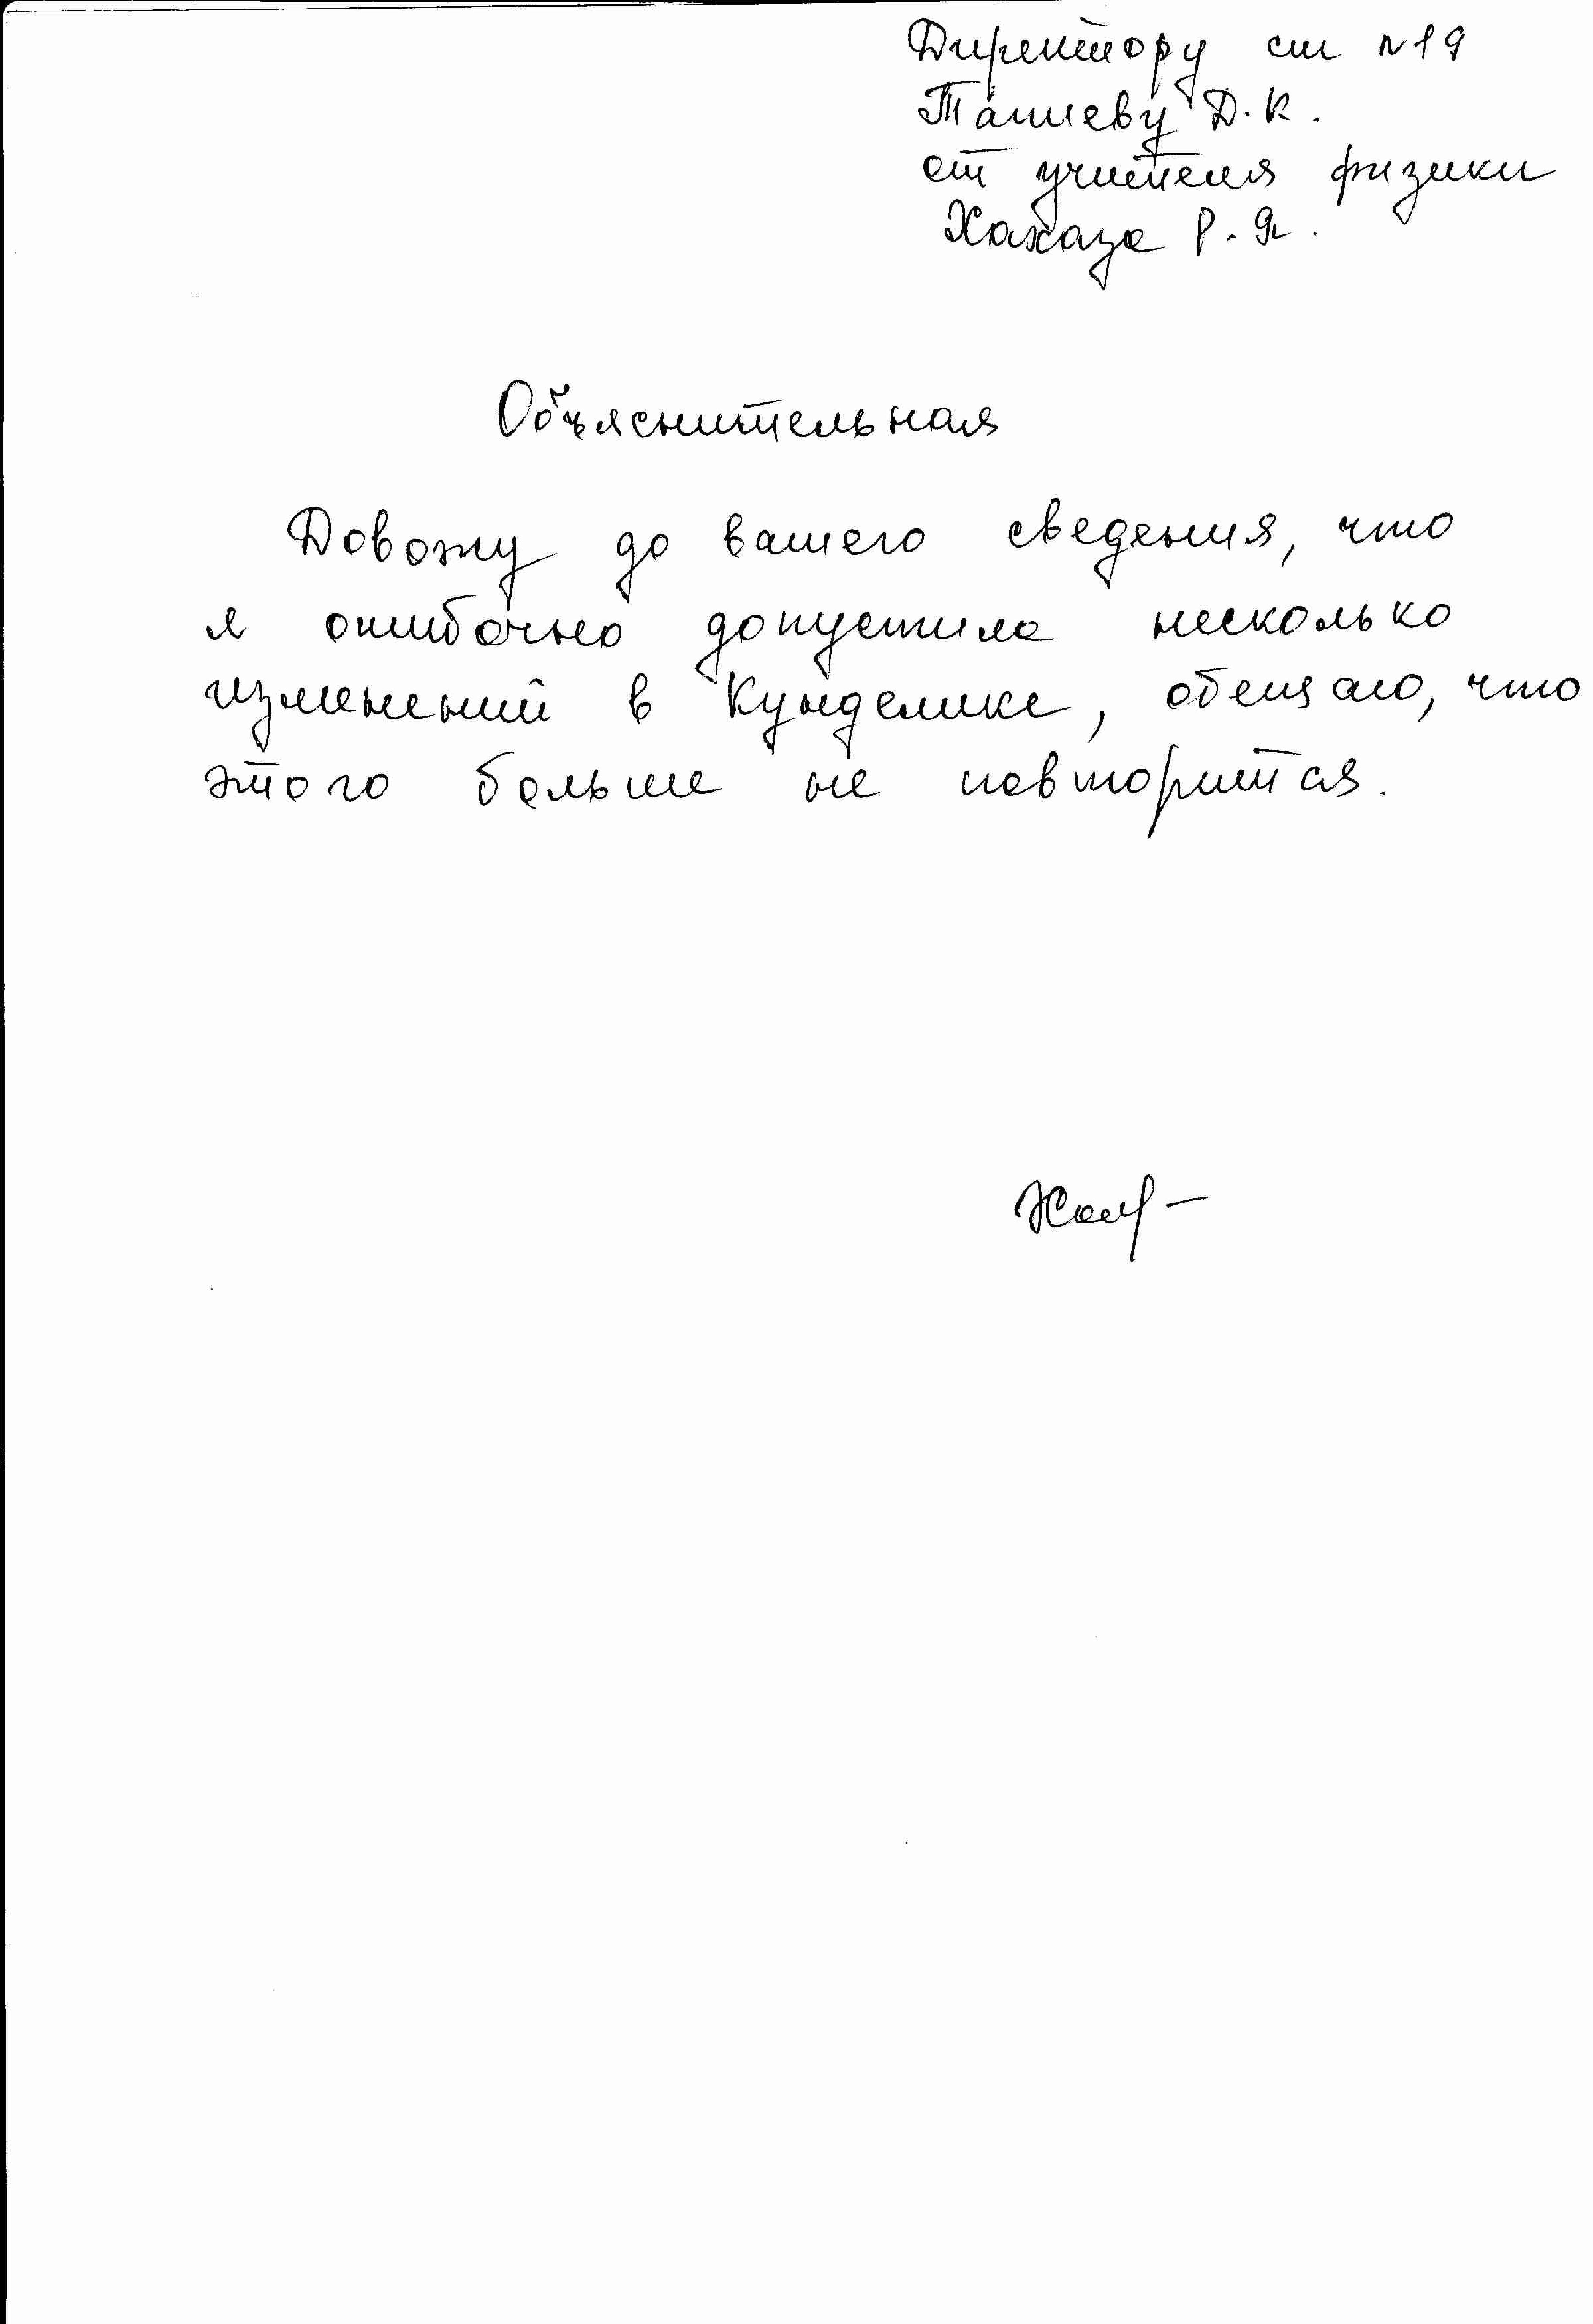 Директору сш №19
Ташиеву Д.К.
от учителя физики
Хахаза Р.Я.
Объяснительная
Довожу до вашего сведения, что
я ошибочно допустила несколько
изменений в Кунделике, обещаю, что
этого больше не повторится.